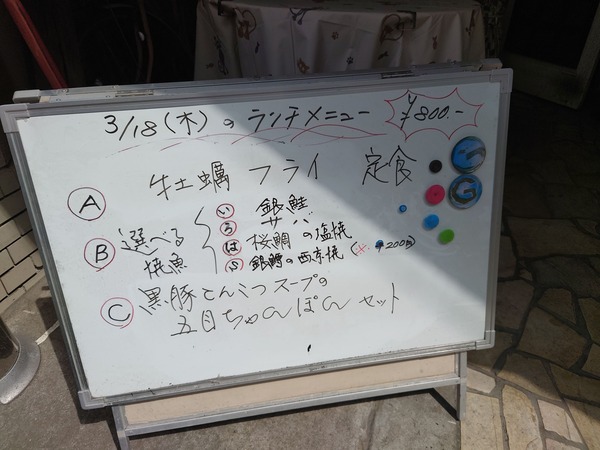 3/18(木)のランチメニュー ¥800.-
牡蠣フライ 定食
A
B 選べる焼魚
い 銀鮭
ろ サバ
は 桜鯛の塩焼
銀鱈の西京焼
C 黒豚とんこつスープの
五目ちゃんぽんセット
G